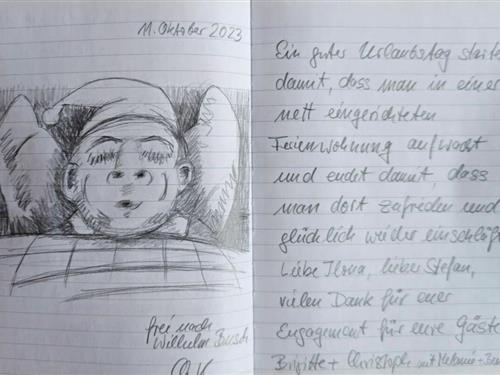 11. Oktober 2023
frei nach
Wilhelm Busch
Ein guter Urlaubstag startet
damit, dass man in einer
nett eingerichteten
Ferienwohnung aufwacht
und endet damit, dass
man dort zufrieden und
glücklich wieder einschläft
Liebe Ilona, lieber Stefan,
vielen Dank für euer
Engagement für eure Gäste
Brigitte + Christoph mit Melanie +